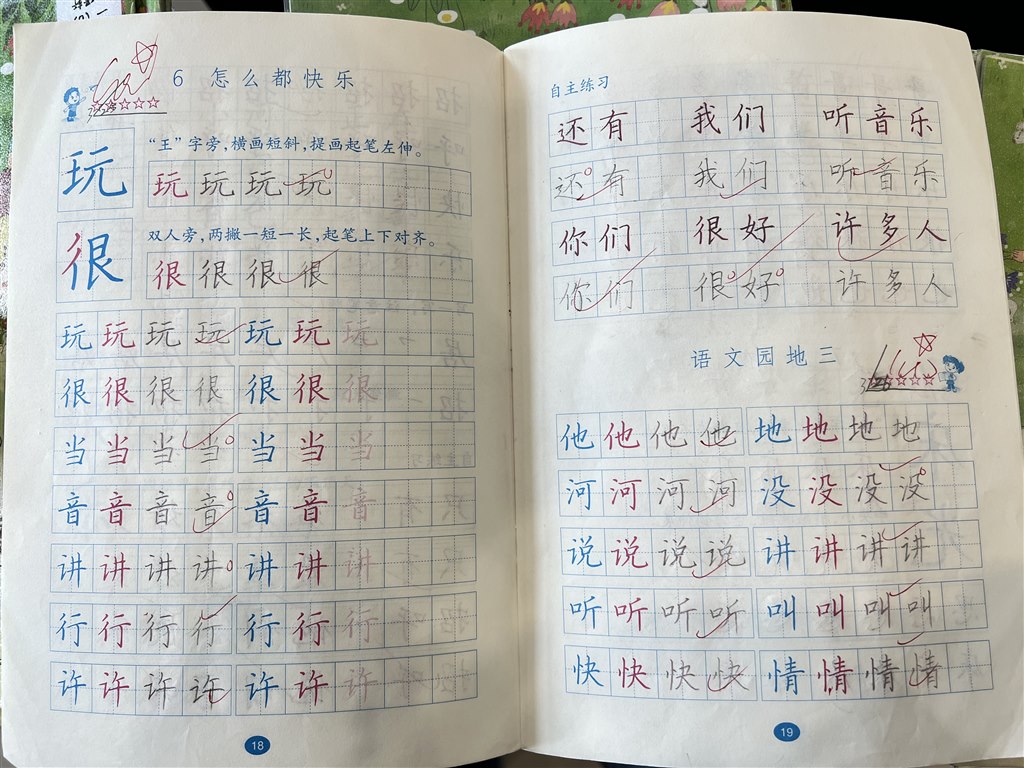 6 怎么都快乐
玩
“王”字旁，横画短斜，提画起笔左伸。
玩 玩 玩 玩
很
双人旁，两撇一短一长，起笔上下对齐。
很 很 很 很
玩 玩 玩 玩 玩 玩 玩
很 很 很 很 很 很 很
当 当 当 当 当 当 当
音 音 音 音 音 音 音
讲 讲 讲 讲 讲 讲 讲
行 行 行 行 行 行 行
许 许 许 许 许 许 许
18
自主练习
还有 我们 听音乐
还有 我们 听音乐
你们 很好 许多人
你们 很好 许多人
语文园地三
他 他 他 他 地 地 地 地
河 河 河 河 没 没 没 没
说 说 说 说 讲 讲 讲 讲
听 听 听 听 叫 叫 叫 叫
快 快 快 快 情 情 情 情
19